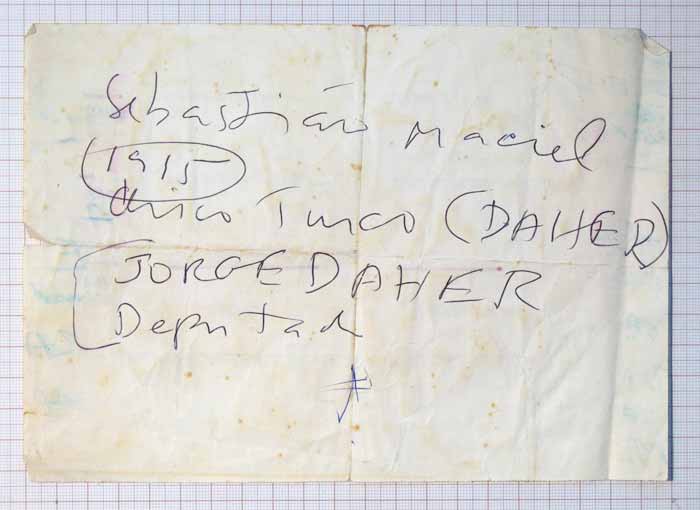 Sebastião Maciel
1915
Chico Turco (DAHER)
JORGE DAHER
Deputad